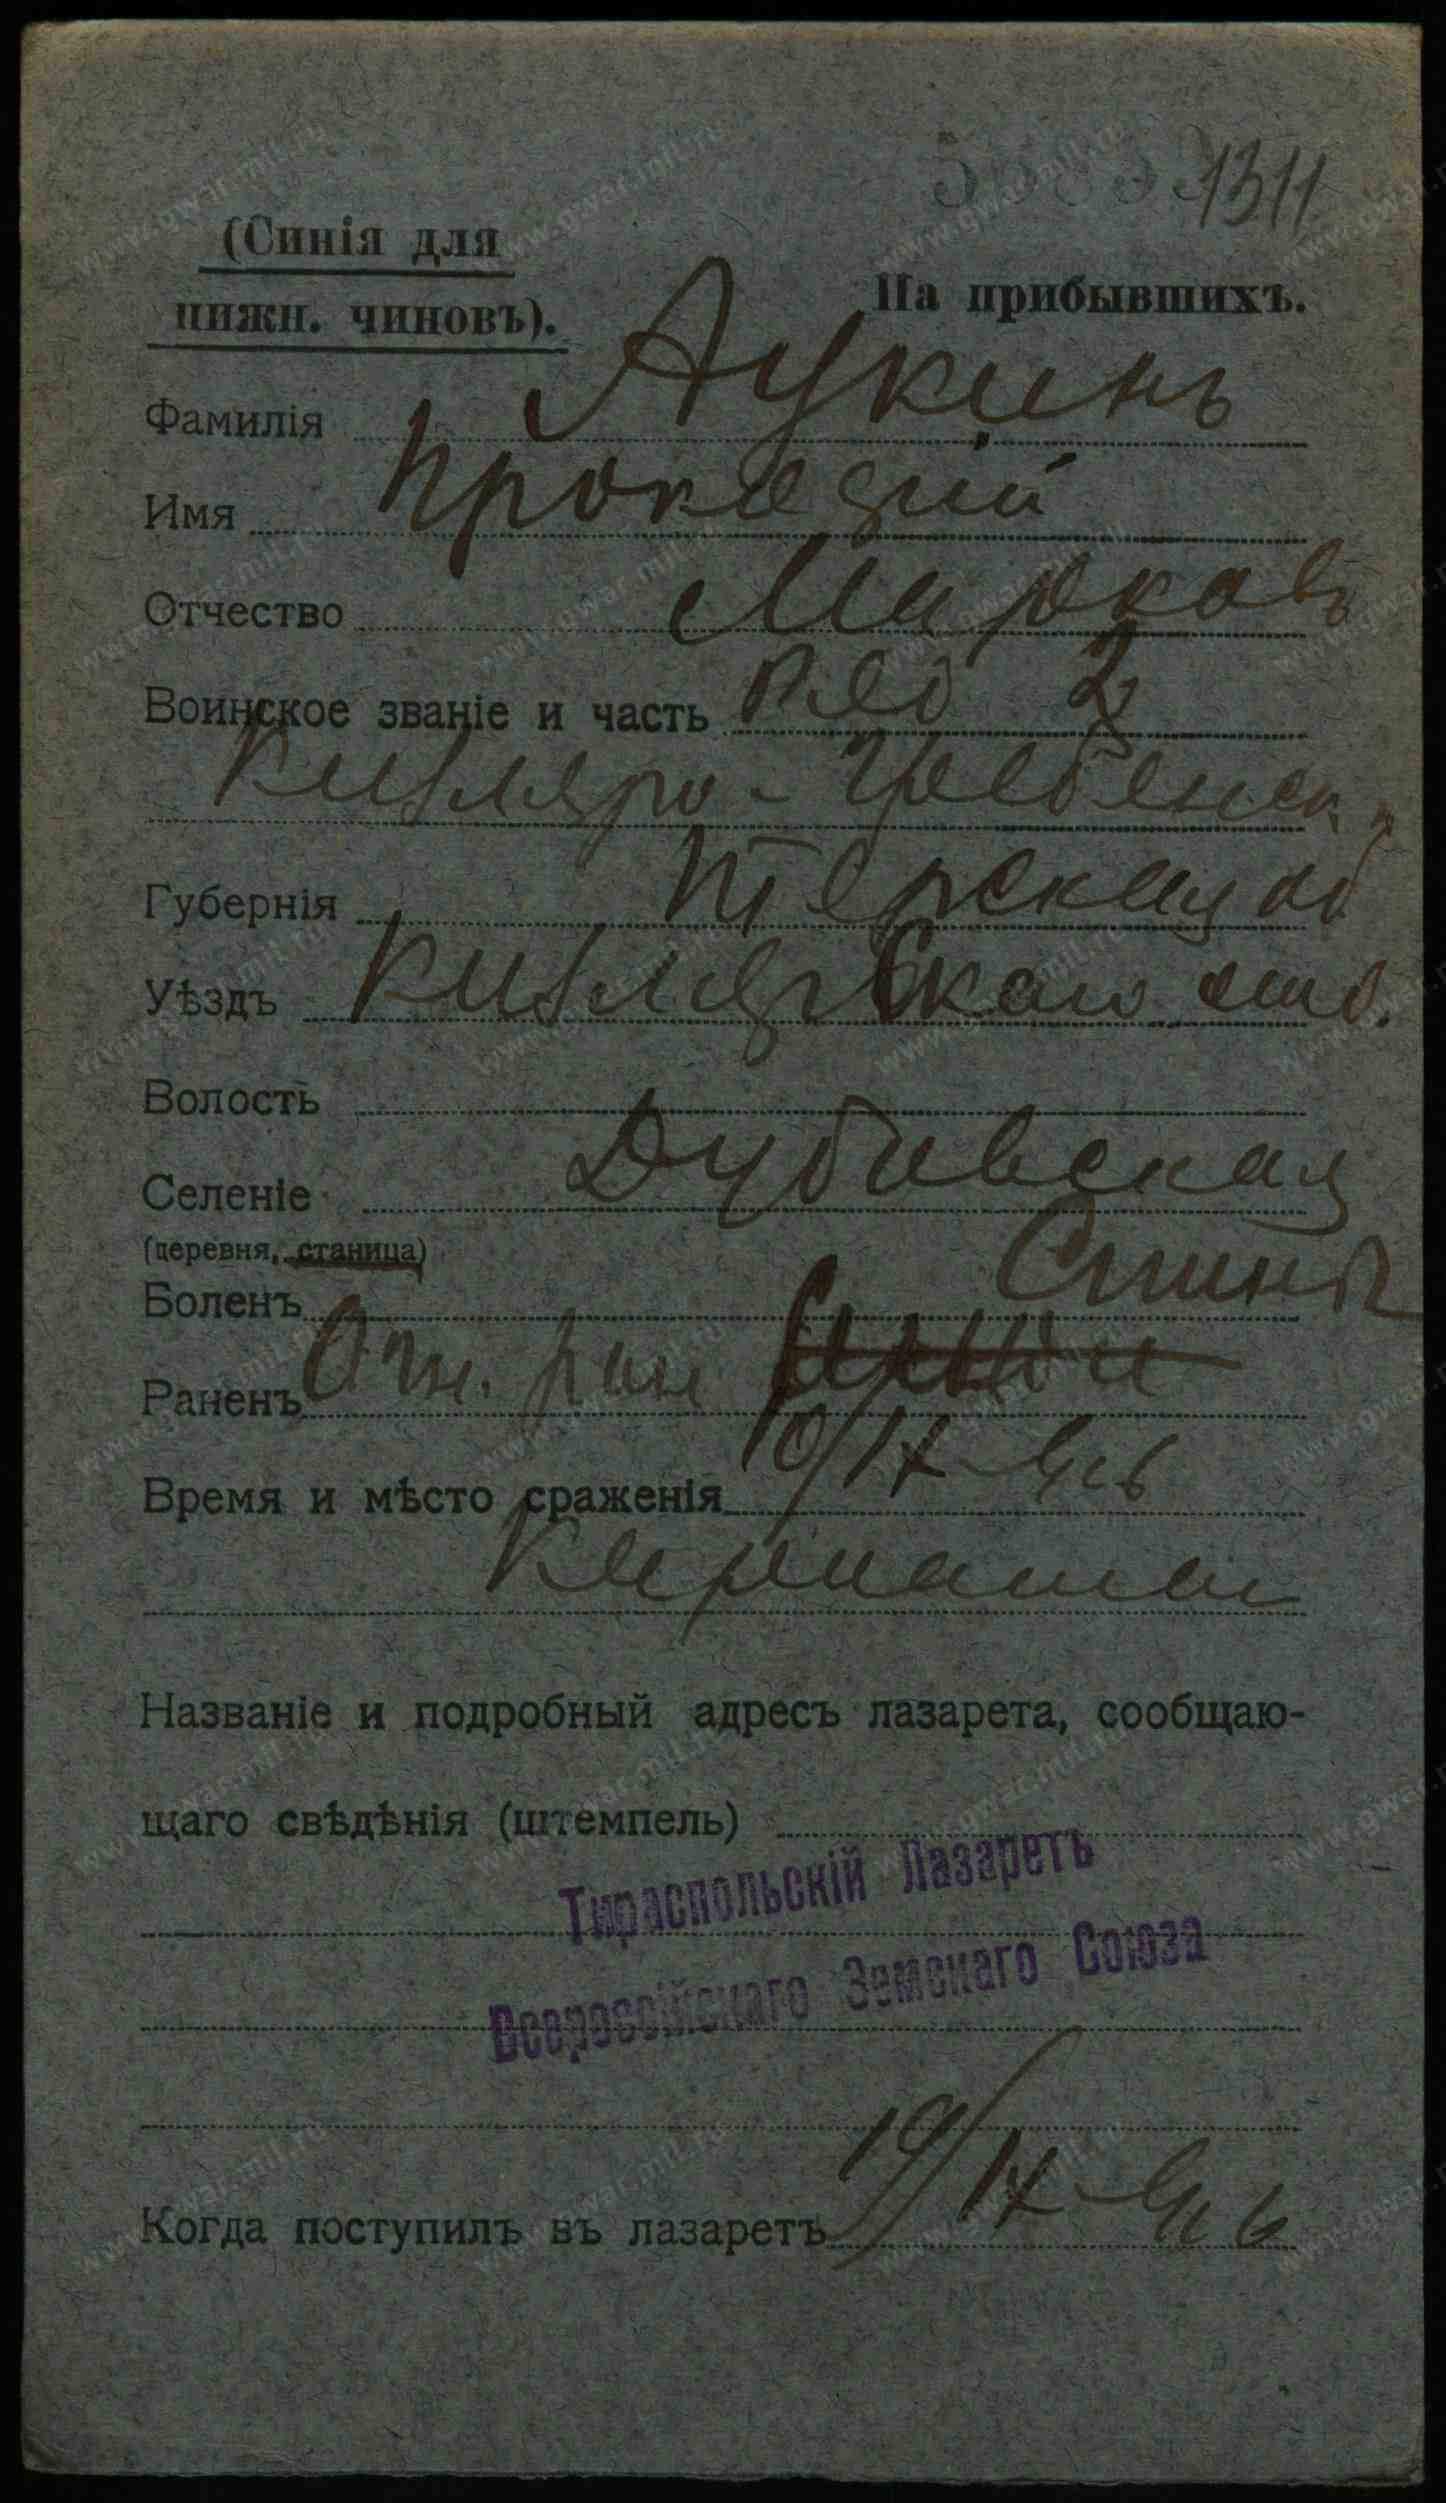 1311
(Синія для
нижн. чиновъ).
На прибывшихъ.
Фамилія Аукинъ
Имя
Отчество Марковъ
Воинское званіе и часть Ряд 2
Кизляро-Гребенск. п
Губернія Терская об
Уѣздъ Кизлярскаго
Волость
Селеніе Дубовская
(деревня, станица)
Боленъ Спины
Раненъ Огн. ран
Время и мѣсто сраженія 10/IX-916
Название и подробный адресъ лазарета, сообщаю-
щаго свѣдѣнія (штемпель)
Тираспольскій Лазаретъ
Всероссійскаго Земскаго Союза
Когда поступилъ въ лазаретъ 19/IX-916